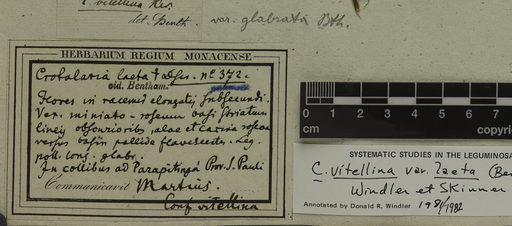 C. vitellina Ker.
det. Benth. var. glabrata Bth.
HERBARIUM REGIUM MONACENSE
Crotalaria laeta nº 372.
vid. Bentham.
Flores in racemis elongatis, subsecundi.
Vex. miniato-roseum basi striatum
lineis obscurioribus, alae et carina roseae
versus basin pallide flavescentes. Leg.
poll. long. glabr.
In collibus ad Parapitinga Prov. S. Pauli
Communicavit Martius.
Conf. vitellina
0 1
cm copyri
SYSTEMATIC STUDIES IN THE LEGUMINOSA
C. vitellina var. laeta (Ben
Windler et Skinner
Annotated by Donald R. Windler 1981/1982